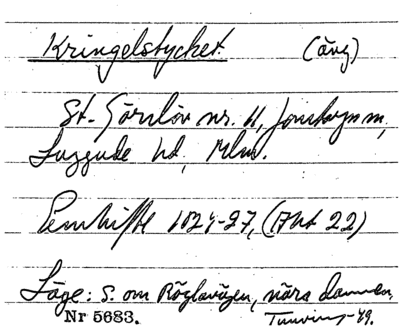 Kringelstycket (äng)
St. Görslöv nr. 11,
Luggude hd, Mlm.
Enskifte 1824-27, (Akt 22)
Läge: S. om Röglavägen, nära dammen.
Nr 5683. Tunving-49.